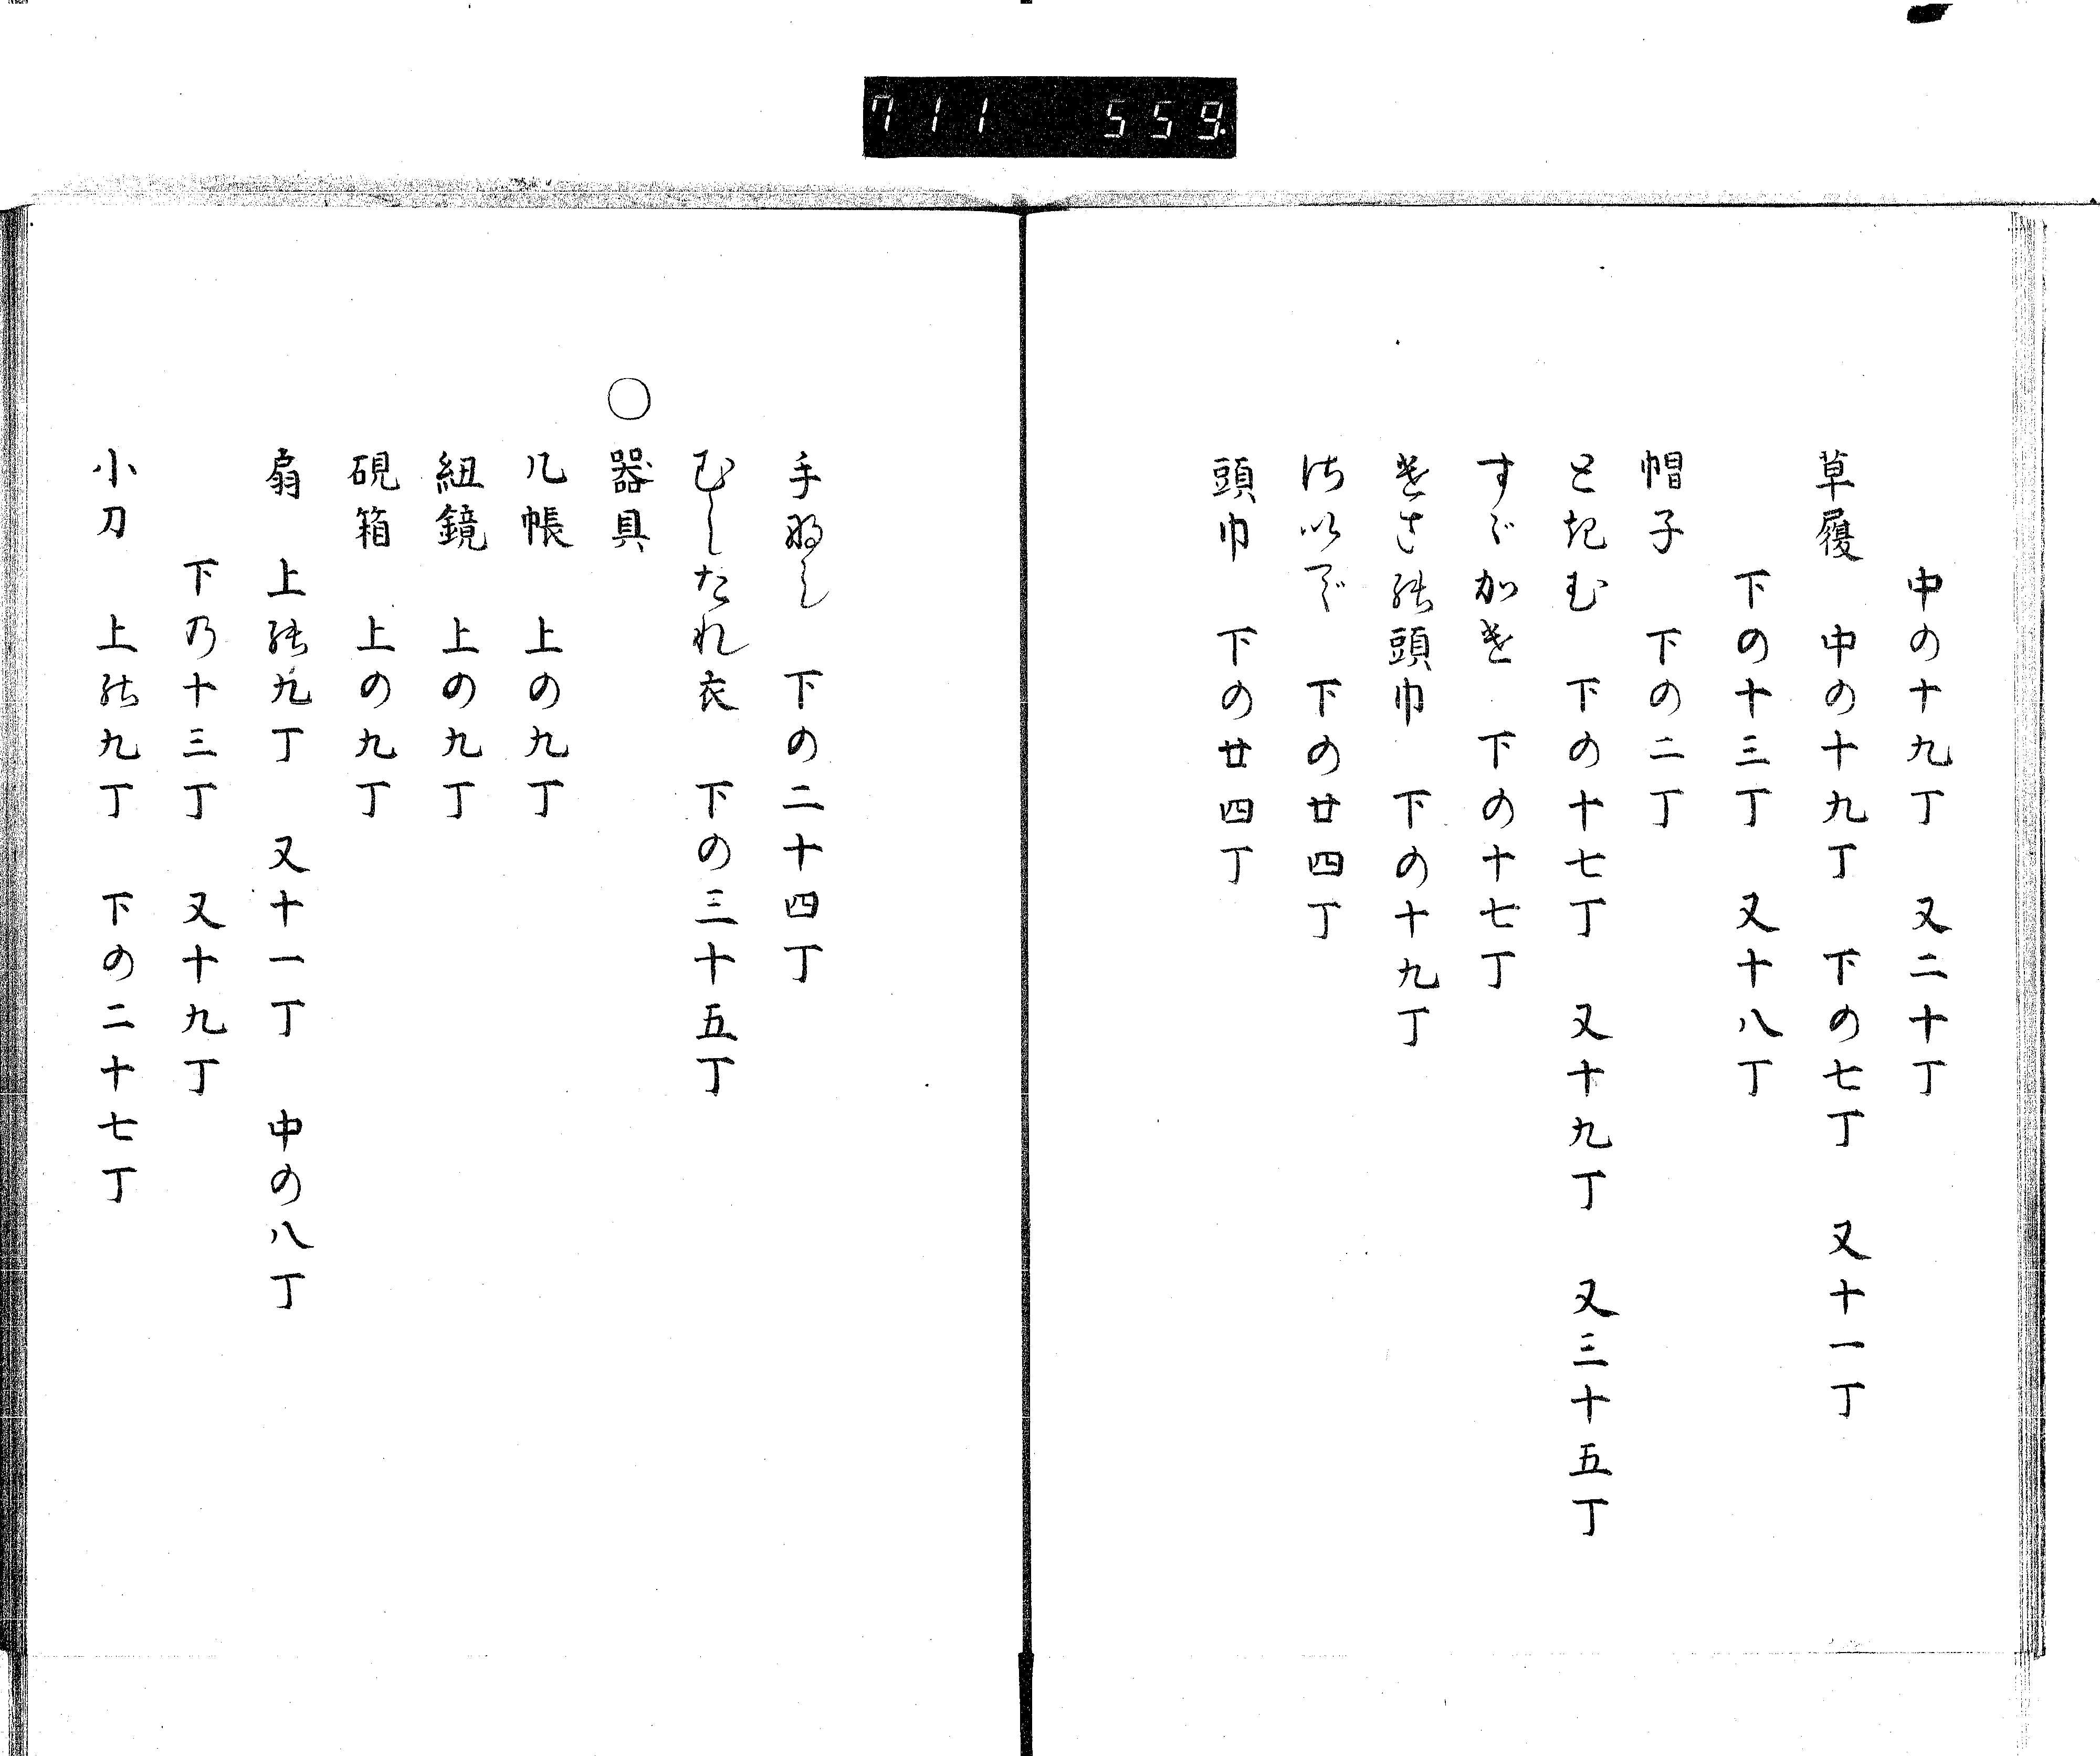 711 559
中の十九丁 又二十丁
草履 中の十九丁 下の七丁 又十一丁
下の十三丁 又十八丁
帽子 下の二丁
ときむ 下の十七丁 又十九丁 又三十五丁
すゞかけ 下の十七丁
けさ能頭巾 下の十九丁
下の廿四丁
頭巾 下の廿四丁
手 下の二十四丁
むしたれ衣 下の三十五丁
〇器具
几帳 上の九丁
紐鏡 上の九丁
硯箱 上の九丁
扇 上能九丁 又十一丁 中の八丁
下乃十三丁 又十九丁
小刀 上能九丁 下の二十七丁